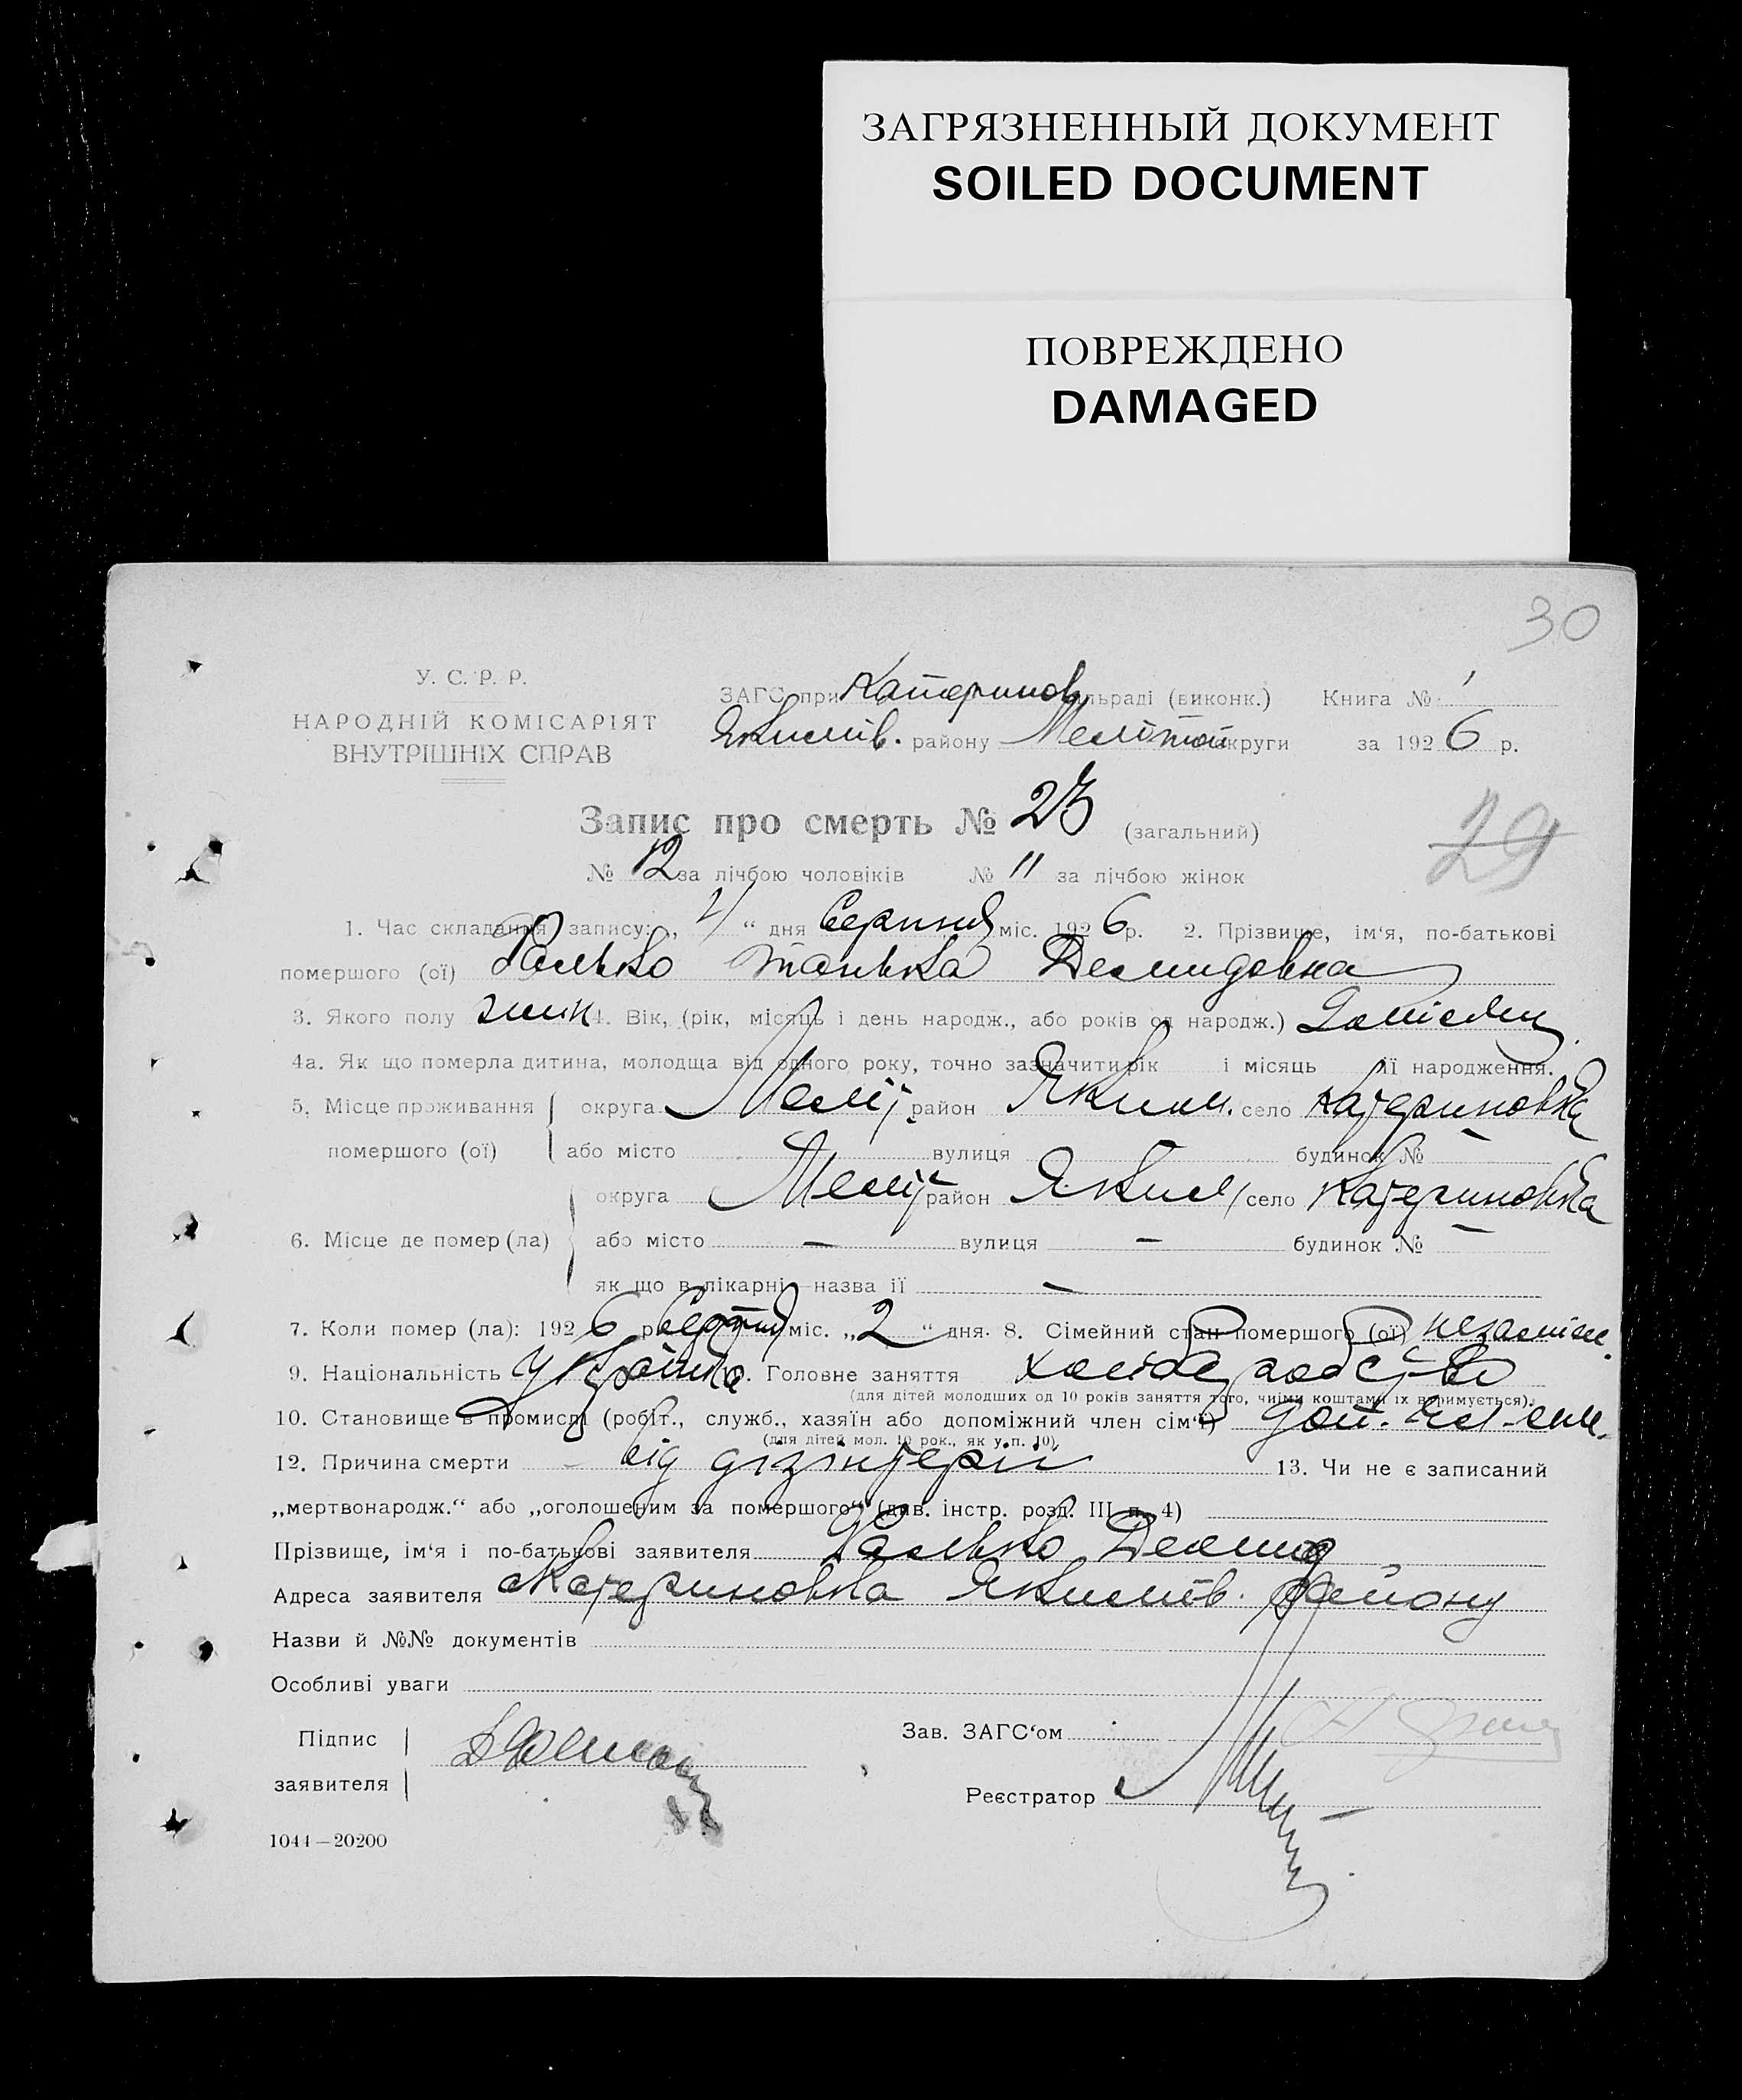 ЗАГРЯЗНЕННЫЙ ДОКУМЕНТ
SOILED DOCUMENT
ПОВРЕЖДЕНО
DAMAGED
30
У. С. Р. Р.
НАРОДНІЙ КОМІСАРІЯТ
ВНУТРІШНІХ СПРАВ
ЗАГС при Катеринов льраді (виконк.) Книга № 1
Якимів. району Меліт округи за 1926 р.
Запис про смерть № 23 (загальний)
29
№ 12 за лічбою чоловіків № 11 за лічбою жінок
1. Час складання запису: „ 4 “ дня Серпня міс. 1926 р. 2. Прізвище, ім‘я, по-батькові
помершого (ої) Демидовна
3. Якого полу жін 4. Вік, (рік, місяць і день народж., або років од народж.)
4а. Як що померла дитина, молодша від одного року, точно зазначити рік і місяць її народження.
5. Місце проживання округа Меліт район Яким. село Катериновка
помершого (ої) або місто вулиця будинок № —
округа Меліт район Яким село Катериновка
6. Місце де помер (ла) або місто — вулиця — будинок № —
як що в лікарні—назва її —
7. Коли помер (ла): 1926 р. Серпня міс. „ 2 “ дня. 8. Сімейний стан помершого (ої) незаміж.
9. Національність Українка Головне заняття хліборобство
(для дітей молодших од 10 років заняття того, чиїми коштами їх втримується).
10. Становище в промислі (робіт., служб., хазяїн або допоміжний член сім‘ї) доп.
(для дітей мол. 10 рок., як у п. 10)
12. Причина смерти від дізінтерії 13. Чи не є записаний
„мертвонародж.“ або „оголошеним за помершого“ (див. інстр. розд. III п. 4)
Прізвище, ім‘я і по-батькові заявителя Демид
Адреса заявителя Катериновка Якимів. району
Назви й №№ документів
Особливі уваги
Підпис
заявителя
Зав. ЗАГС‘ом
Реєстратор
1044—20200